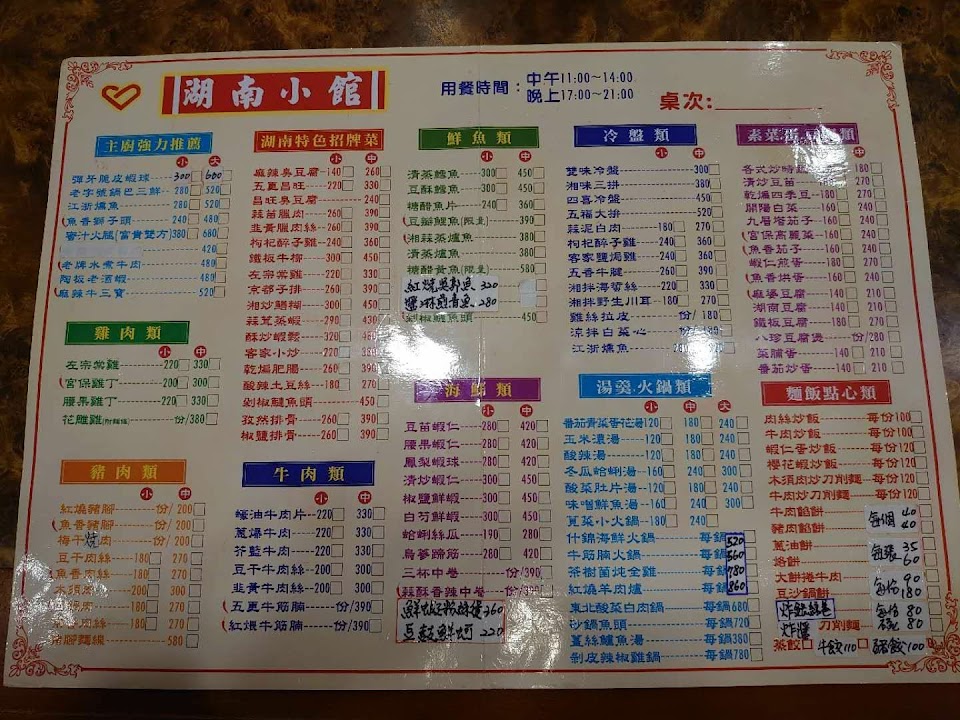 湖南小館
用餐時間：中午11:00~14:00
晚上17:00~21:00
桌次:
主廚強力推薦
小 大
彈牙脆皮蝦球 300 600
老字號鍋巴三鮮 280 520
江浙燻魚 280 520
魚香獅子頭 240 480
蜜汁火腿(富貴雙方) 380 680
420
老牌水煮牛肉 480
陶板老酒蝦 480
麻辣牛三寶 520
雞肉類
小 中
左宗棠雞 220 330
宮保雞丁 200 300
腰果雞丁 220 330
花雕雞 份/380
豬肉類
小 中
紅燒豬腳 份/200
魚香豬腳 份/200
梅干燒肉 份/200
豆干肉絲 180 270
魚香肉絲 180 270
木須肉 180 270
180 270
180 270
豬腳麵線 580
湖南特色招牌菜
小 中
麻辣臭豆腐 140 260
五更昌旺 220 330
昌旺臭豆腐 240
蒜苗臘肉 260 390
韭黃臘肉絲 260 390
枸杞醉子雞 240 360
鐵板牛柳 300 450
左宗棠雞 220 330
京都子排 260 390
湘炒鱔糊 300 450
蒜茸蒸蝦 290 430
酥炒蝦鬆 320 480
客家小炒 220 330
乾煸肥腸 260 390
酸辣土豆絲 180 270
剁椒鰱魚頭 450
孜然排骨 260 390
椒鹽排骨 260 390
牛肉類
小 中
蠔油牛肉片 220 330
蔥爆牛肉 220 330
芥藍牛肉 220 330
豆干牛肉絲 220 330
韭黃牛肉絲 220 330
五更牛筋腩 份/390
紅燜牛筋腩 份/390
鮮魚類
小 中
清蒸鱈魚 300 450
豆酥鱈魚 300 450
糖醋魚片 240 360
豆瓣鯉魚(限量) 390
湘蒜蒸爐魚 380
清蒸爐魚 380
糖醋黃魚(限量) 580
紅燒吳郭魚 320
280
剁椒鰱魚頭 450
海鮮類
小 中
豆苗蝦仁 280 420
腰果蝦仁 280 420
鳳梨蝦球 280 420
清炒蝦仁 280 420
椒鹽鮮蝦 300 450
白芍鮮蝦 300 450
蛤蜊絲瓜 190 280
烏蔘蹄筋 280 420
三杯中卷 份/390
蒜酥香辣中卷 份/390
260
豆豉鮮蚵 220
冷盤類
小 中
雙味冷盤 300
湘味三拼 380
四喜冷盤 450
五福大拼 520
蒜泥白肉 180 270
枸杞醉子雞 240 360
客家鹽焗雞 240 360
五香牛腱 240 360
湘拌海蜇絲 220 330
湘拌野生川耳 180 270
雞絲拉皮 份/180
涼拌白菜心 份/180
江浙燻魚 280 520
湯羹.火鍋類
小 中 大
番茄青菜蛋花湯 120 180 240
玉米濃湯 120 180 240
酸辣湯 120 180 240
冬瓜蛤蜊湯 160 240 320
酸菜肚片湯 120 180 240
味噌鮮魚湯 120 180 240
莧菜小火鍋 180 240
什錦海鮮火鍋 每鍋520
牛筋腩火鍋 每鍋560
茶樹菌炖全雞 每鍋780
紅燒羊肉爐 每鍋860
東北酸菜白肉鍋 每鍋680
沙鍋魚頭 每鍋720
薑絲鱸魚湯 每鍋380
剝皮辣椒雞鍋 每鍋780
素菜蛋豆腐類
小 中
各式炒時蔬 180
清炒豆苗 180 270
乾煸四季豆 180 270
開陽白菜 160 240
九層塔茄子 160 240
宮保高麗菜 160 240
魚香茄子 160 240
蝦仁煎蛋 160 240
魚香烘蛋 160 240
麻婆豆腐 140 210
湖南豆腐 140 210
鐵板豆腐 180 270
八珍豆腐煲 份/280
菜脯蛋 140 210
番茄炒蛋 140 210
麵飯點心類
肉絲炒飯 每份100
牛肉炒飯 每份100
蝦仁蛋炒飯 每份120
櫻花蝦炒飯 每份120
木須肉炒刀削麵 每份120
牛肉炒刀削麵 每份120
牛肉餡餅 每個40
豬肉餡餅 40
蔥油餅 每張35
烙餅 60
大餅捲牛肉 每份90
豆沙鍋餅 180
每份80
炸醬刀削麵 每碗80
蒸餃 牛餃110 豬餃100